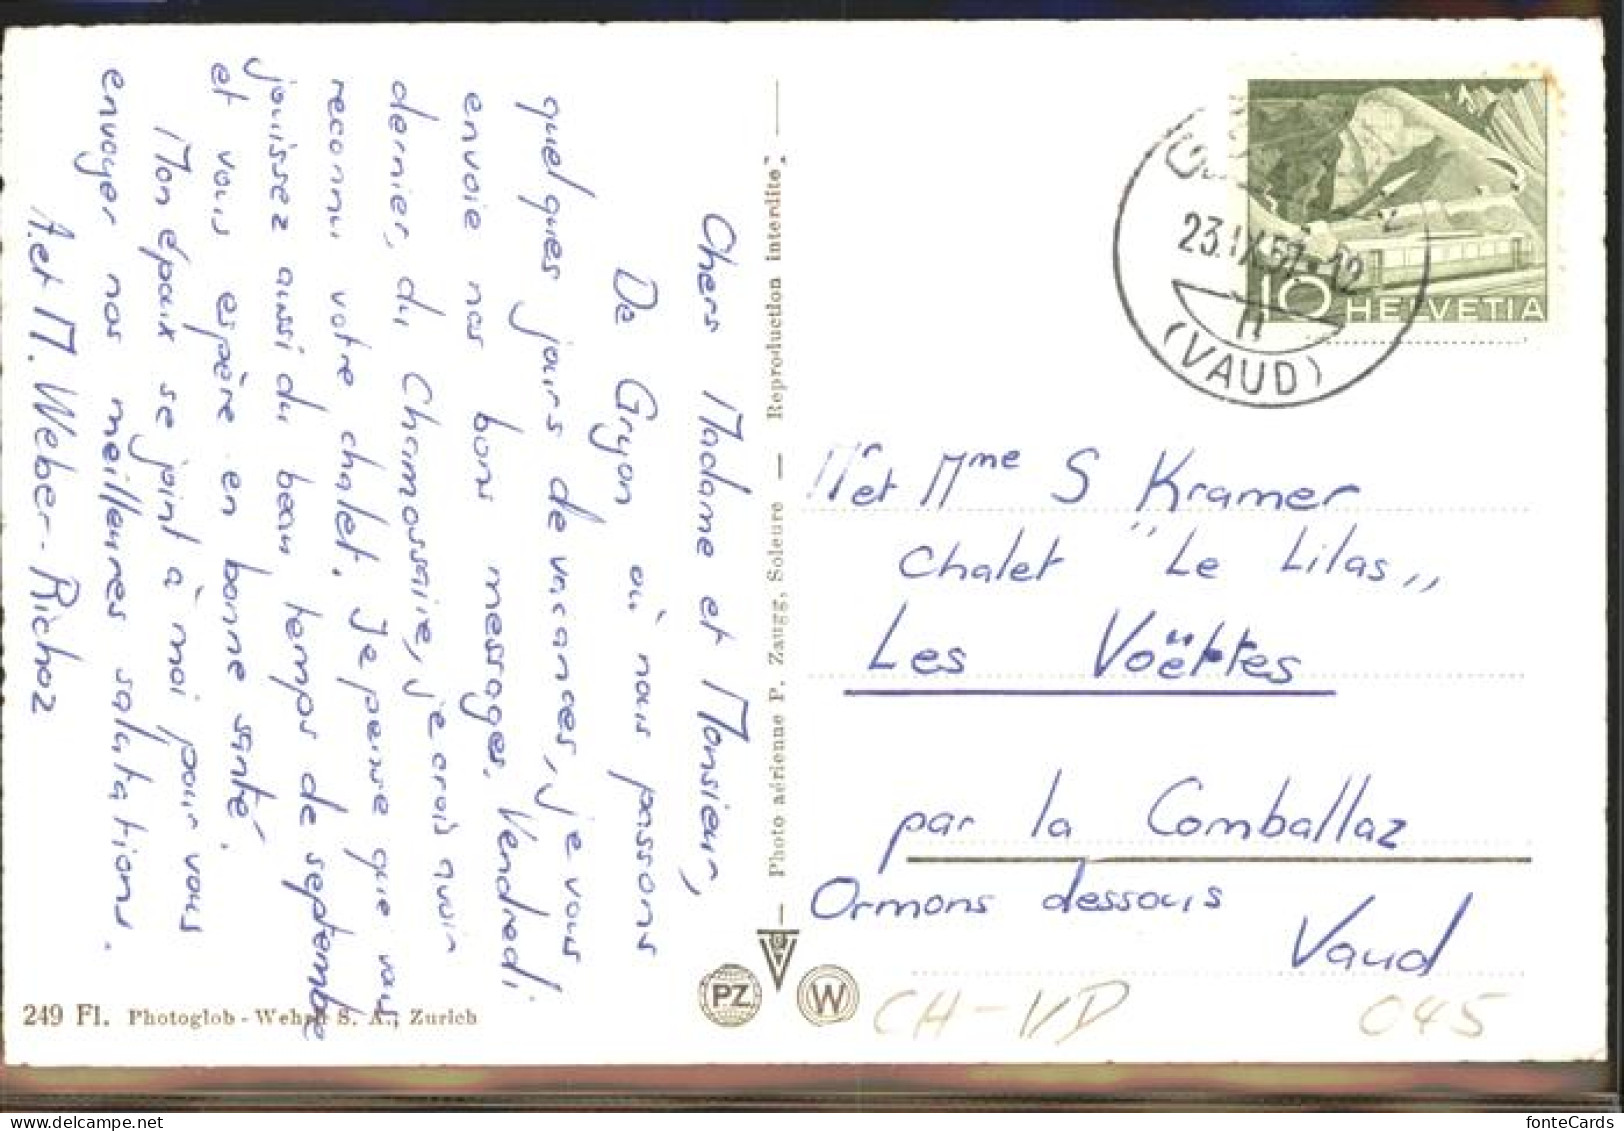 Chers Madame et Monsieur,
De Gryon où nous passons
quelques jours de vacances, je vous
envoie nos bons messages. Vendredi
dernier, du Chamossaire, je crois avoir
reconnu votre chalet. Je pense que vous
jouissez aussi du beau temps de septembre
et vous espère en bonne santé.
Mon époux se joint à moi pour vous
envoyer nos meilleures salutations.
A. et M. Weber-Richoz
249 Fl. Photoglob - Wehrli S. A., Zurich
Photo aérienne P. Zaugg, Soleure — Reproduction interdite
PZ
W
23.IX.57-12
(VAUD)
10 HELVETIA
M et Mme S Kramer
Chalet "Le Lilas"
Les Voëttes
par la Comballaz
Ormons dessous
Vaud
CH-VD 045
fonteCards